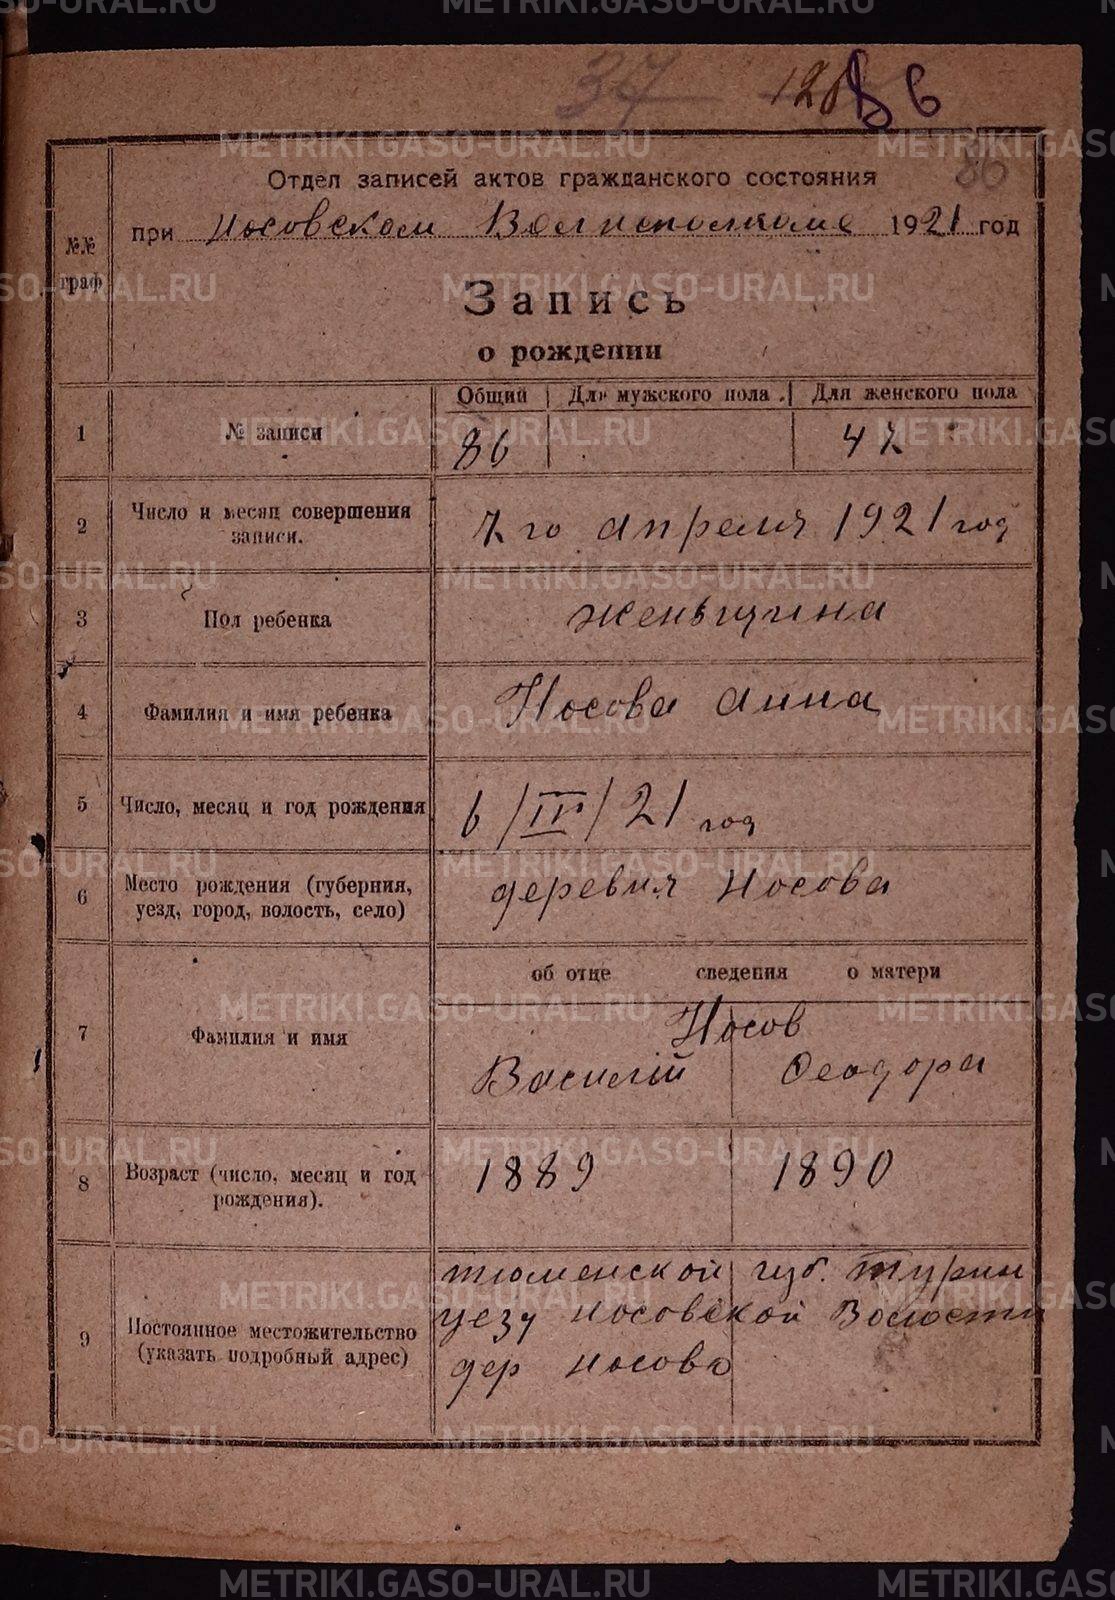 37 128 86
86
Отдел записей актов гражданского состояния
при Носовском Волисполкоме 1921 год
№№ граф
Запись
о рождении
Общий Для мужского пола Для женского пола
1 № записи 86 47
2 Число и месяц совершения записи. 7 го апреля 1921 год
3 Пол ребенка женьщина
4 Фамилия и имя ребенка Носова Анна
5 Число, месяц и год рождения 6/IV/21 год
6 Место рождения (губерния, уезд, город, волость, село) деревня Носова
об отце сведения о матери
7 Фамилия и имя Носов
Василий Феодора
8 Возраст (число, месяц и год рождения). 1889 1890
9 Постоянное местожительство (указать подробный адрес)
тюменской губ. Турин
уезу Носовской Волости
дер Носова
METRIKI.GASO-URAL.RU